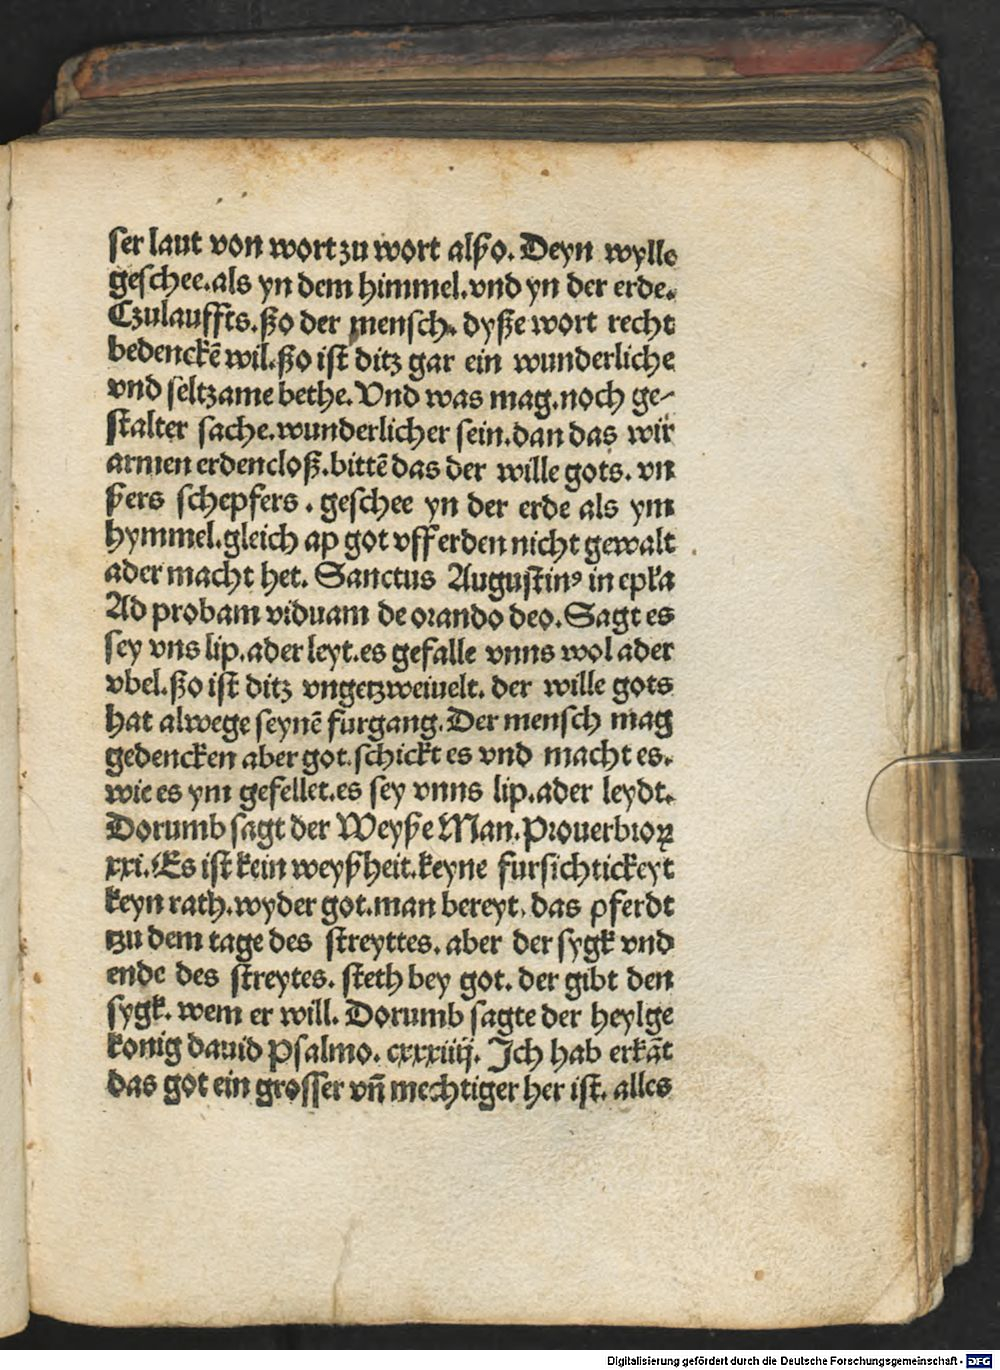 ser laut von wort zu wort alßo. Deyn wylle
geschee.als yn dem himmel.vnd yn der erde.
Czulauffts.ßo der mensch. dyße wort recht
bedenckē wil.ßo ist ditz gar ein wunderliche
vnd seltzame bethe.Vnd was mag.noch ge-
stalter sache.wunderlicher sein.dan das wir
armen erdencloß.bittē das der wille gots. vn
ßers schepfers . geschee yn der erde als ym
hymmel.gleich ap got vff erden nicht gewalt
ader macht het. Sanctus Augustinꝰ in epl'a
Ad probam viduam de orando deo.Sagt es
sey vns lip.ader leyt.es gefalle vnns wol ader
vbel.ßo ist ditz vngetzweiuelt. der wille gots
hat alwege seynē furgang.Der mensch mag
gedencken aber got.schickt es vnd macht es.
wie es ym gefellet.es sey vnns lip.ader leydt.
Dorumb sagt der Weyße Man.Prouerbioꝝ
xxi.Es ist kein weyßheit.keyne fursichtickeyt
keyn rath.wyder got.man bereyt.das pferdt
tzu dem tage des streyttes. aber der sygk vnd
ende des streytes. steth bey got. der gibt den
sygk. wem er will. Dorumb sagte der heylge
konig dauid Psalmo. cxxxiiij. Ich hab erkāt
das got ein grosser vn̄ mechtiger her ist. alles
Digitalisierung gefördert durch die Deutsche Forschungsgemeinschaft - DFG